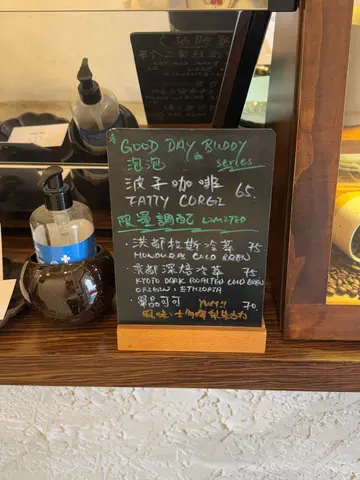 GOOD DAY BUDDY
泡泡 series
波子咖啡 65.
FATTY CORGI
限量調配 LIMITED
·洪都拉斯冷萃 75
HONDURAS COLD BREW
·京都深焙冷萃 75
KYOTO DARK ROASTED COLD BREW
ORIGIN: ETHIOPIA
·單品可可 YUM!! 70.
風味: